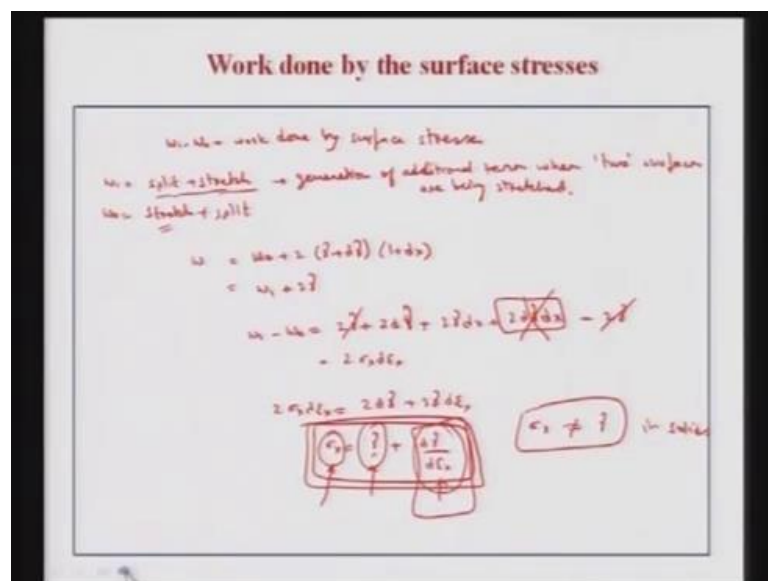 Work done by the surface stresses
w₁ - w₀ = work done by surface stresses
w₁ = split + stretch → generation of additional term when 'two' surfaces
are being stretched.
w₀ = stretch + split
w = w₀ + 2 (γ + dγ) (1 + dx)
= w₁ + 2γ
w₁ - w₀ = 2γ + 2dγ + 2γdx + 2dγdx - 2γ
= 2 σₓ dεₓ
2 σₓ dεₓ = 2dγ + 2γ dεₓ
σₓ = γ + dγ/dεₓ
σₓ ≠ γ in solids